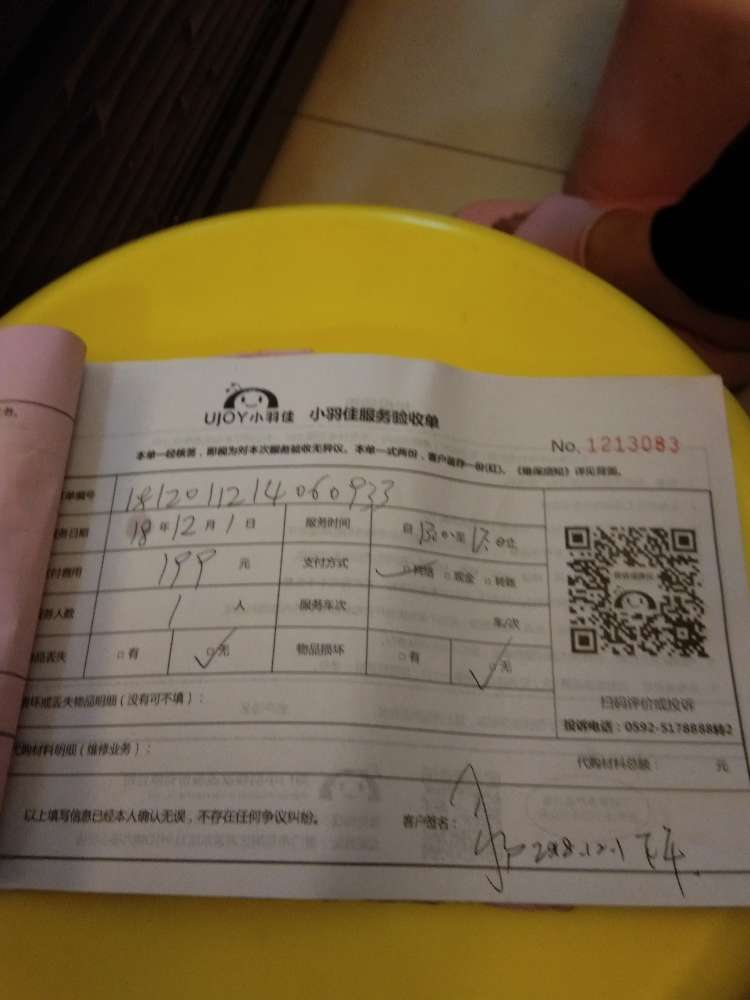 UJOY小羽佳 小羽佳服务验收单
No. 1213083
本单一经核签，即视为对本次服务验收无异议。本单一式两份，客户留存一份(红)。《维保须知》详见背面。
单编号 1812011214060933
务日期 18 年 12 月 1 日 服务时间 自 13:00 至 17:00 止
付费用 199 元 支付方式 □网络 □现金 □转账
务人数 1 人 服务车次 车/次
品丢失 □有 □无 物品损坏 □有 □无
损坏或丢失物品明细（没有可不填）：
扫码评价或投诉
投诉电话：0592-5178888转2
代购材料明细（维修业务）：
代购材料总额： 元
以上填写信息已经本人确认无误，不存在任何争议纠纷。
客户签名： 2018.12.1 下午